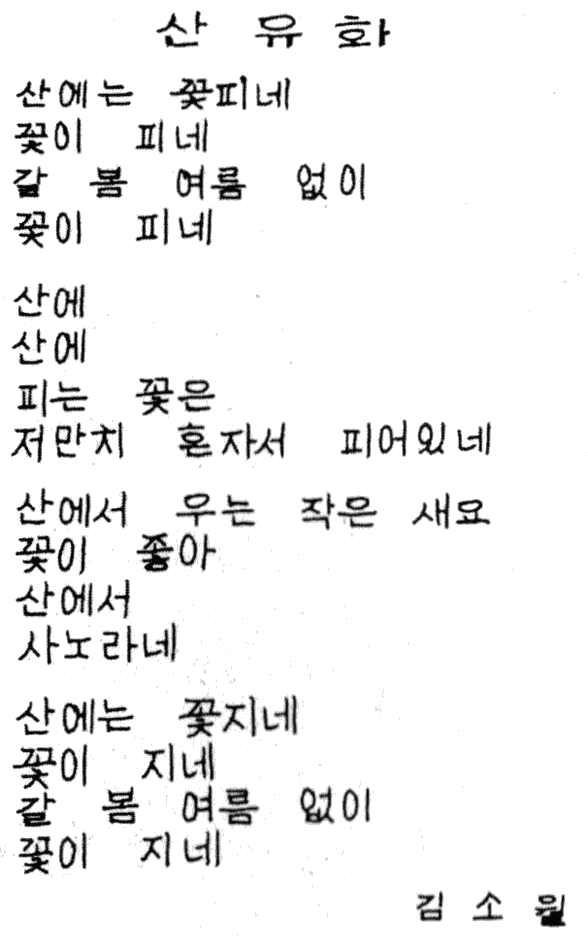 산 유 화
산에는 꽃피네
꽃이 피네
갈 봄 여름 없이
꽃이 피네
산에
산에
피는 꽃은
저만치 혼자서 피어있네
산에서 우는 작은 새요
꽃이 좋아
산에서
사노라네
산에는 꽃지네
꽃이 지네
갈 봄 여름 없이
꽃이 지네
김 소 월